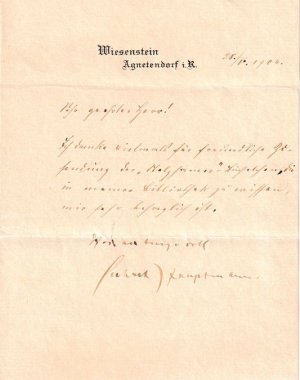 Wiesenstein
Agnetendorf i. R.
Sehr geehrter Herr!
Ich danke vielmals für freundliche Zu-
sendung der
in meiner Bibliothek zu wissen,
mir sehr behaglich ist.
Hochachtungsvoll
Gerhart Hauptmann.